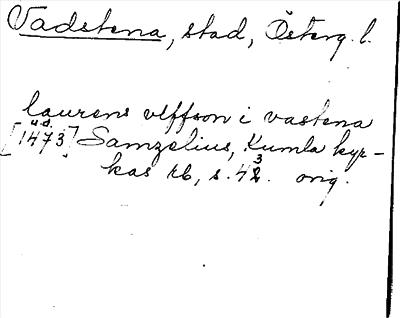 Vadstena, stad, Österg. l.
laurens vlffson i vastena
u.d.
[1473] Samzelius, Kumla kyr-
kas rb, s. 43. orig.